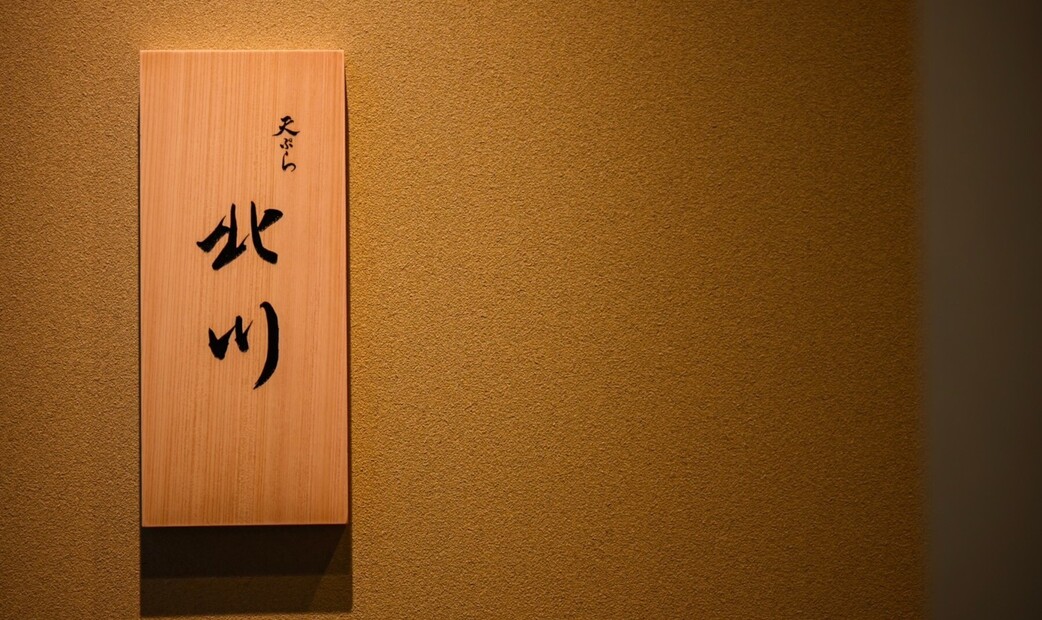 天ぷら
北川